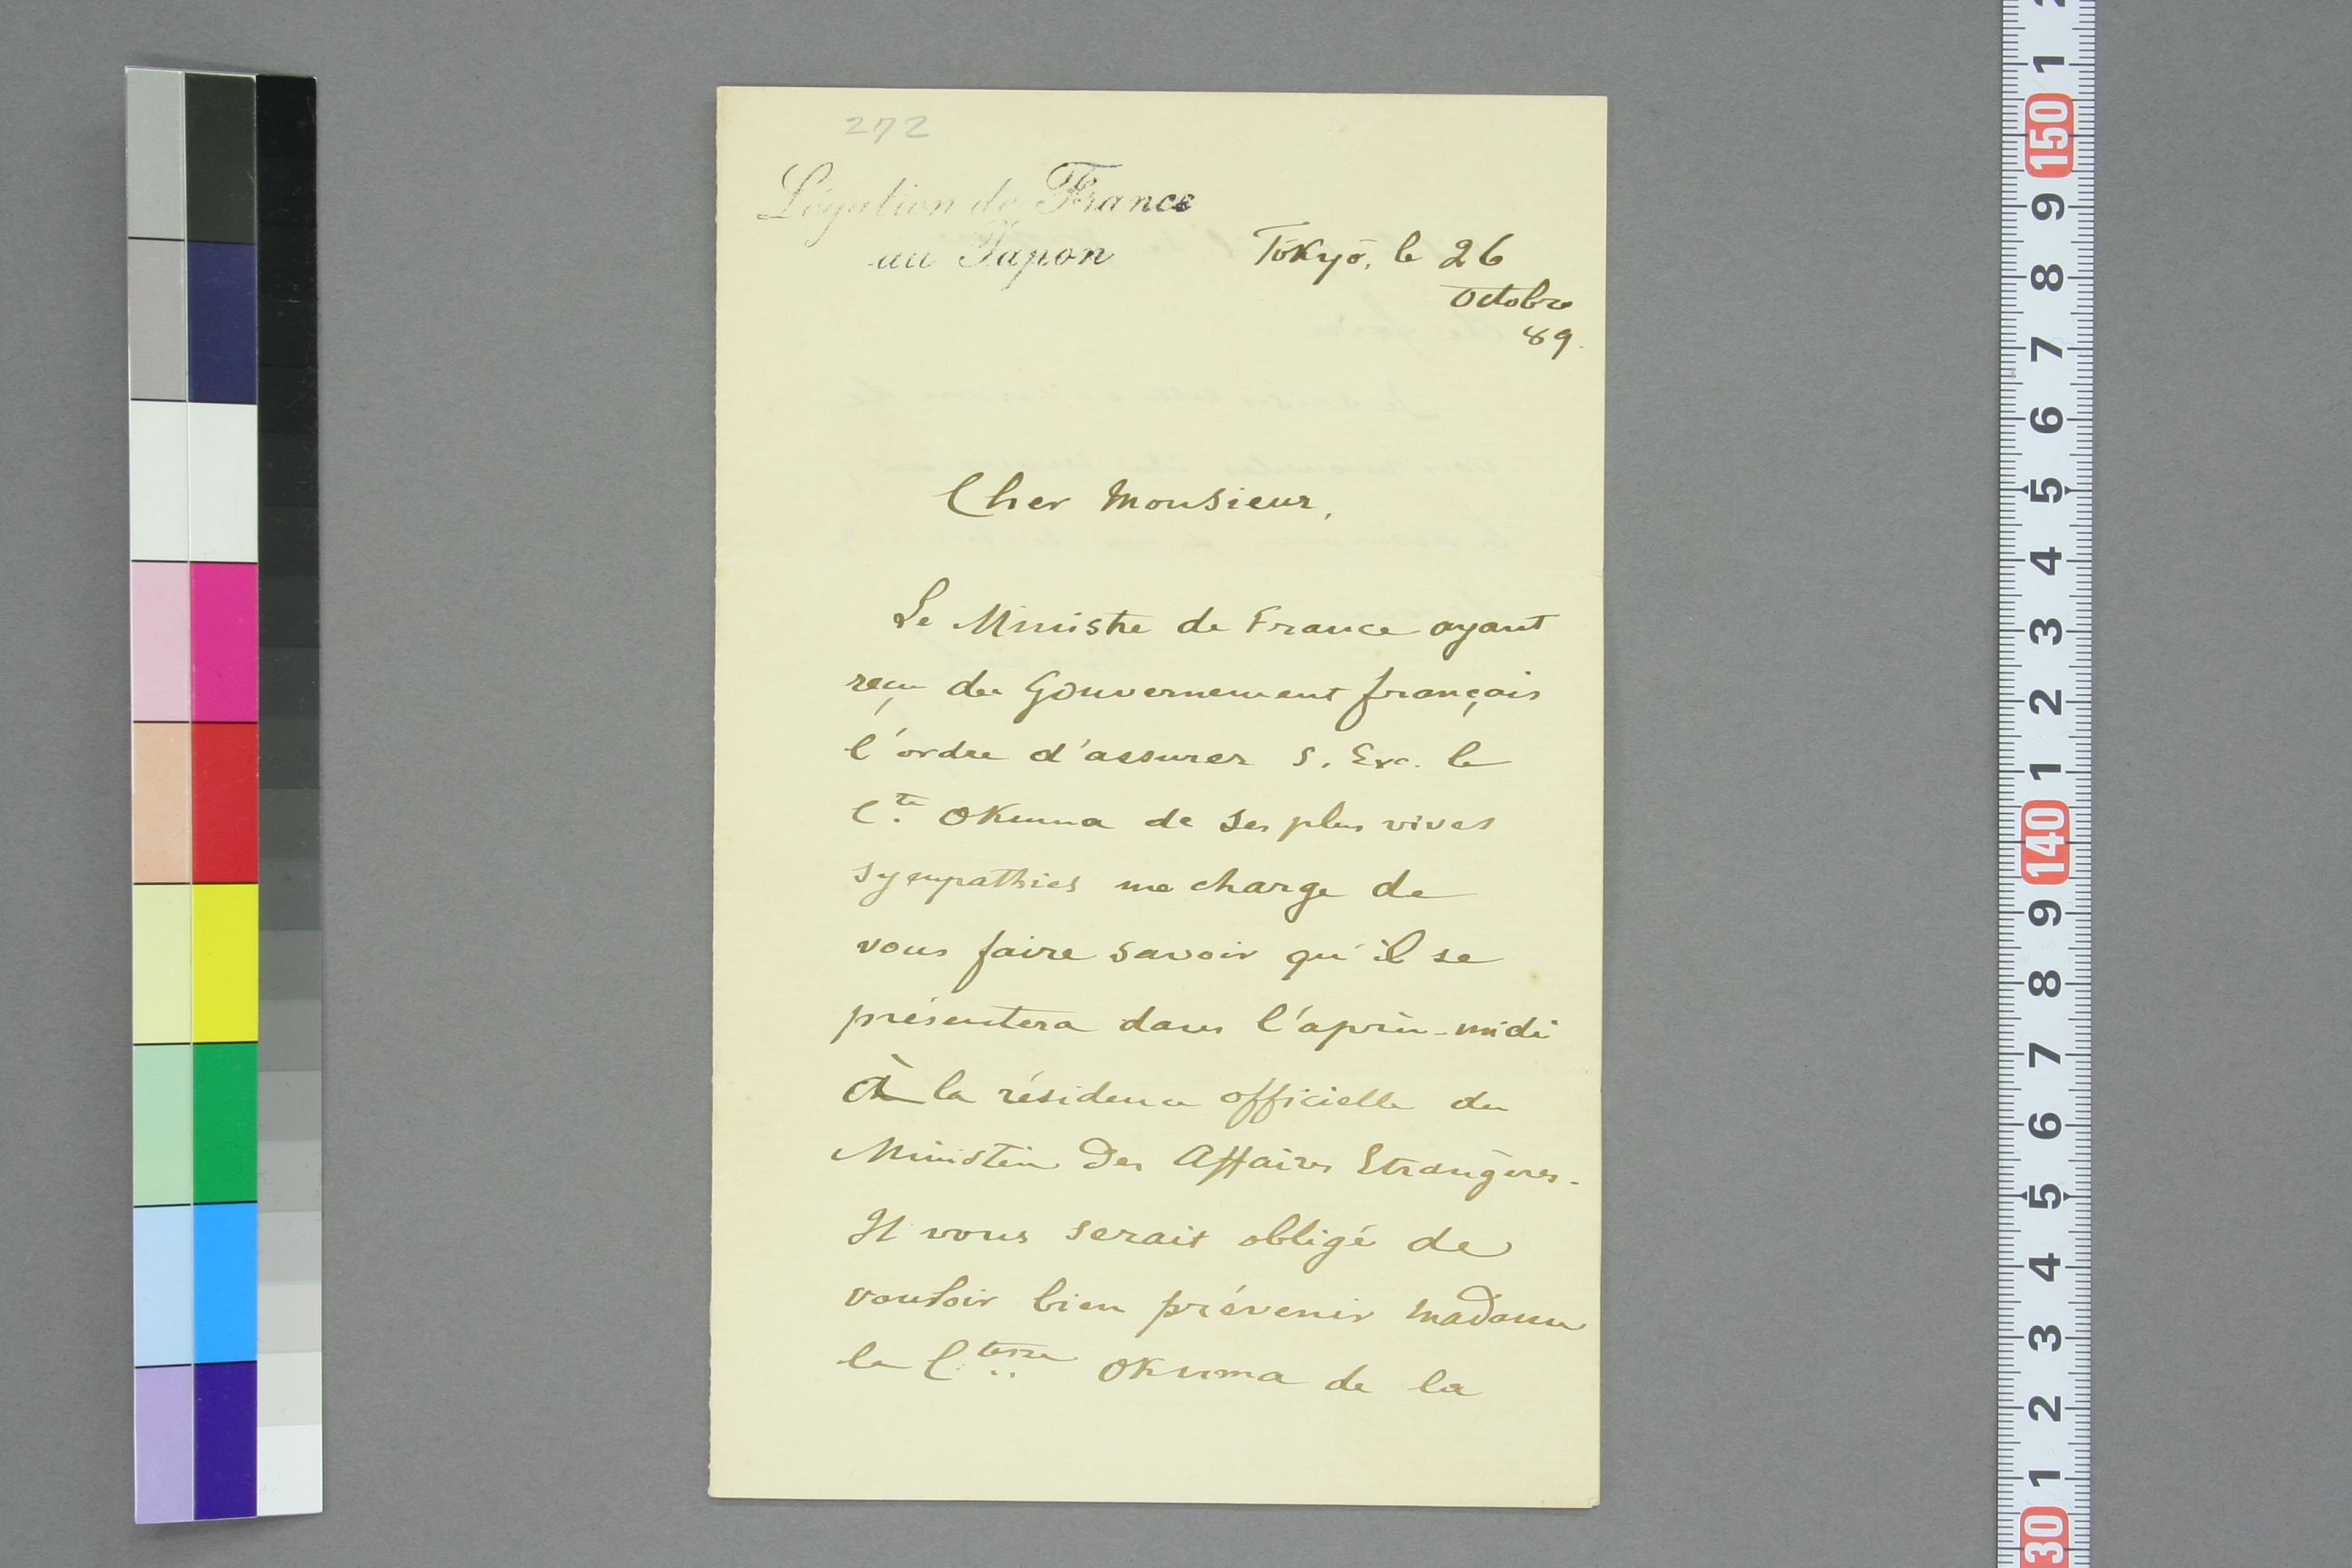 272
Légation de France
au Japon
Tōkyō, le 26
Octobre
89.
Cher Monsieur,
Le Ministre de France ayant
reçu du Gouvernement français
l'ordre d'assurer S. Exc. le
Cte Okuma de ses plus vives
sympathies me charge de
vous faire savoir qu'il se
présentera dans l'après-midi
à la résidence officielle du
Ministère des Affaires Etrangères.
Il vous serait obligé de
vouloir bien prévenir Madame
la Ctesse Okuma de la
2
1
150
9
8
7
6
5
4
3
2
1
140
9
8
7
6
5
4
3
2
1
30